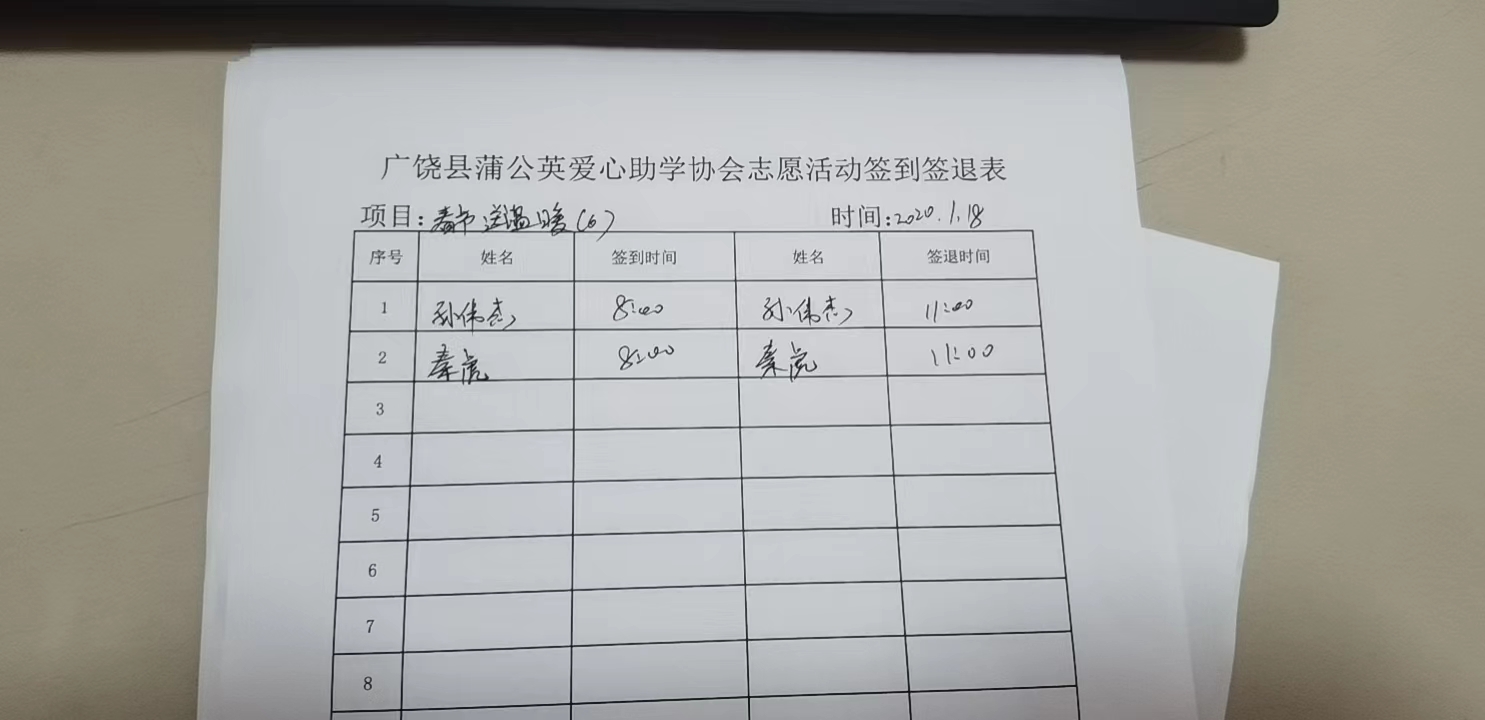 广饶县蒲公英爱心助学协会志愿活动签到签退表
项目:春节送温暖(6) 时间:2020.1.18
序号 姓名 签到时间 姓名 签退时间
1 孙伟杰 8:00 孙伟杰 11:00
2 秦虎 8:00 秦虎 11:00
3
4
5
6
7
8